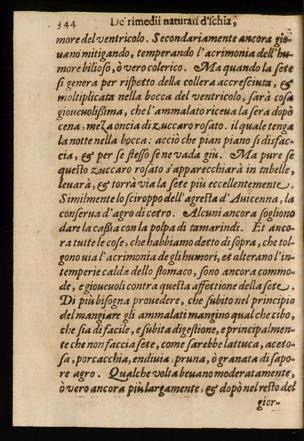 344 De' rimedii naturali d'Ischia,
more del ventricolo. Secondariamente ancora gio-
uano mitigando, temperando l'acrimonia dell'hu-
more bilioso, ò vero colerico. Ma quando la sete
si genera per rispetto della collera accresciuta, &
moltiplicata nella bocca del ventricolo, sarà cosa
gioueuolissima, che l'ammalato riceua la sera dopò
cena: mez'a oncia di zuccaro rosato. il quale tenga
la notte nella bocca: acciò che pian piano si disfac-
cia, & per se stesso se ne vada giù. Ma pure se
questo zuccaro rosato s'apparecchiarà in tabelle,
leuarà, & torrà via la sete più eccellentemente.
Similmente lo sciroppo dell'agresta d'Auicenna, la
conserua d'agro di cetro. Alcuni ancora sogliono
dare la cassia con la polpa di tamarindi. Et anco-
ra tutte le cose, che habbiamo detto di sopra, che tol-
gono uia l'acrimonia de gli humori, et alterano l'in-
temperie calda dello stomaco, sono ancora commo-
de, e gioueuoli contra questa affettione della sete.
Di più bisogna prouedere, che subito nel principio
del mangiare gli ammalati mangino qual che cibo,
che sia di facile, e subita digestione, e principalmen-
te che non faccia sete, come sarebbe lattuca, aceto-
sa, porcacchia, endiuia, pruna, ò granata di sapo-
re agro. Qualche volta beuano moderatamente,
ò vero ancora più largamente, & dopò nel resto del
gior-